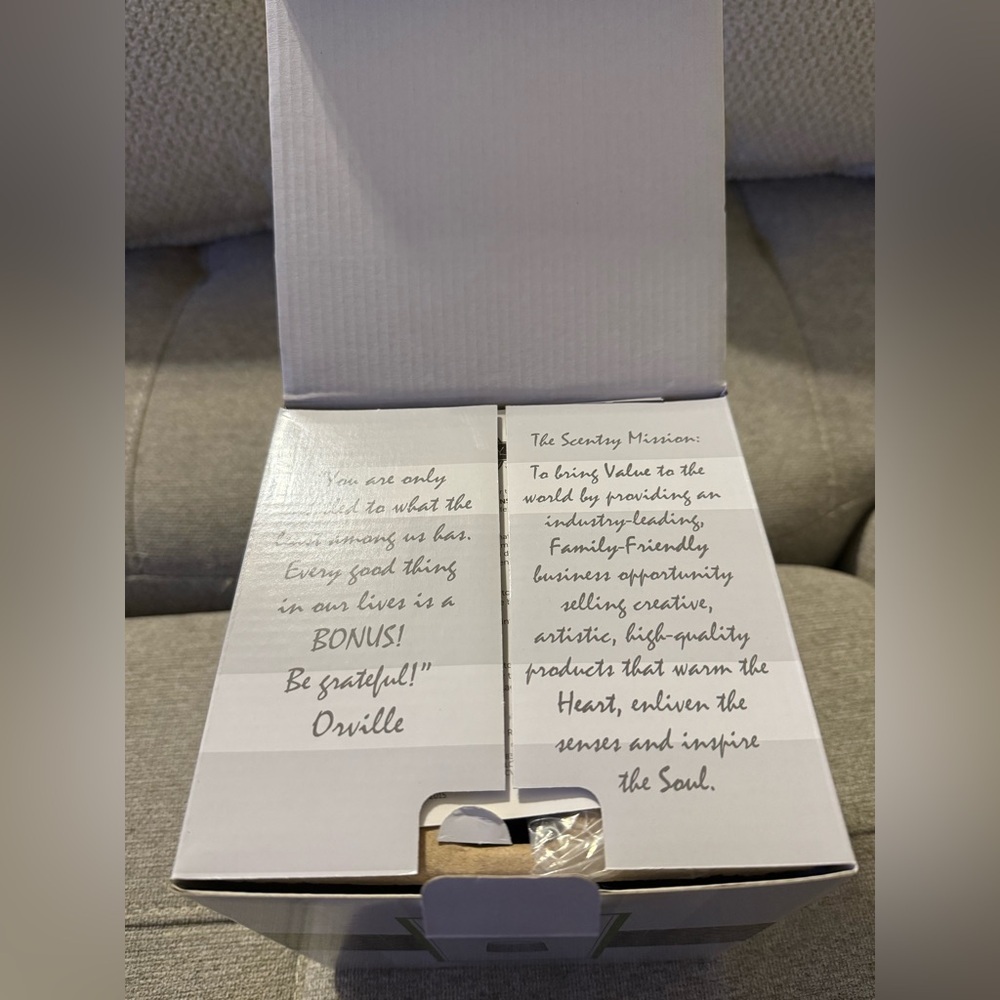 You are only
to what the
among us has.
Every good thing
in our lives is a
BONUS!
Be grateful!"
Orville
The Scentsy Mission:
To bring Value to the
world by providing an
industry-leading,
Family-Friendly
business opportunity
selling creative,
artistic, high-quality
products that warm the
Heart, enliven the
senses and inspire
the Soul.